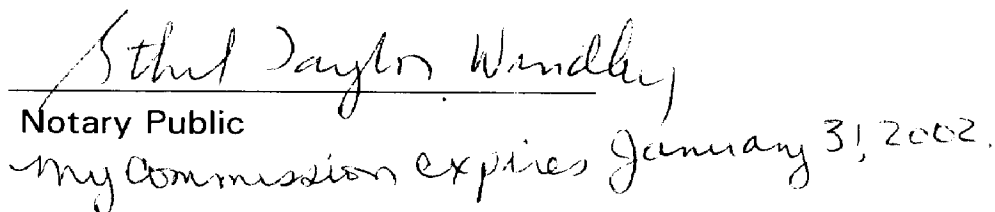 Ethel Taylor Windley
Notary Public
My commission expires January 31, 2002.